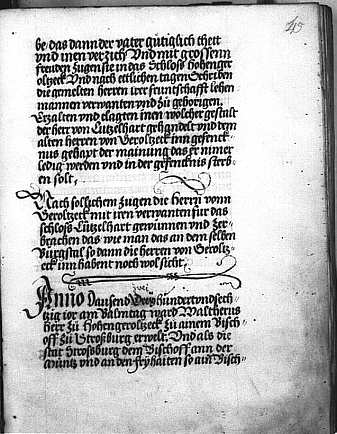 45
be das dann der vater gütiglich theit
vnd inen verzich Vnd mit grossenn
freuden Zugen sie in das Schloß hohenge
roltzeck Vnd nach ettlichen tagen Schriben
die gemelten herren irer freuntschafft lehen
mannen verwanten vnd zu gehorigen,
Erzalten vnd clagten inen welcher gestalt
der herr von Lützelhart gehandelt vnd dem
alten herren von Geroltzeck inn gefenck¬
nus gehapt der mainung das er nimer
ledig werden vnd in der gefencknis sterb¬
en solt,
Nach sollichem Zugen die Herrn vonn
Geroltzeck mit iren verwanten für das
schloß Lützelhart gewünnen vnd Zer¬
brachen das wie man das an dem selben
Burgstal so dann die herren von Geroltz¬
eck inn habent noch wol sicht.
zwei
Anno Dausend Drey hundert vnd sech¬
tzig ior am Palmtag ward Waltherus
herr zu Hohengeroltzeck zu ainem Bisch¬
off zü Stroßburg erwelt. Vnd als die
stat Stroßburg dem Bischoff ann der
Müntz vnd an den fryhaiten so ain Bisch¬